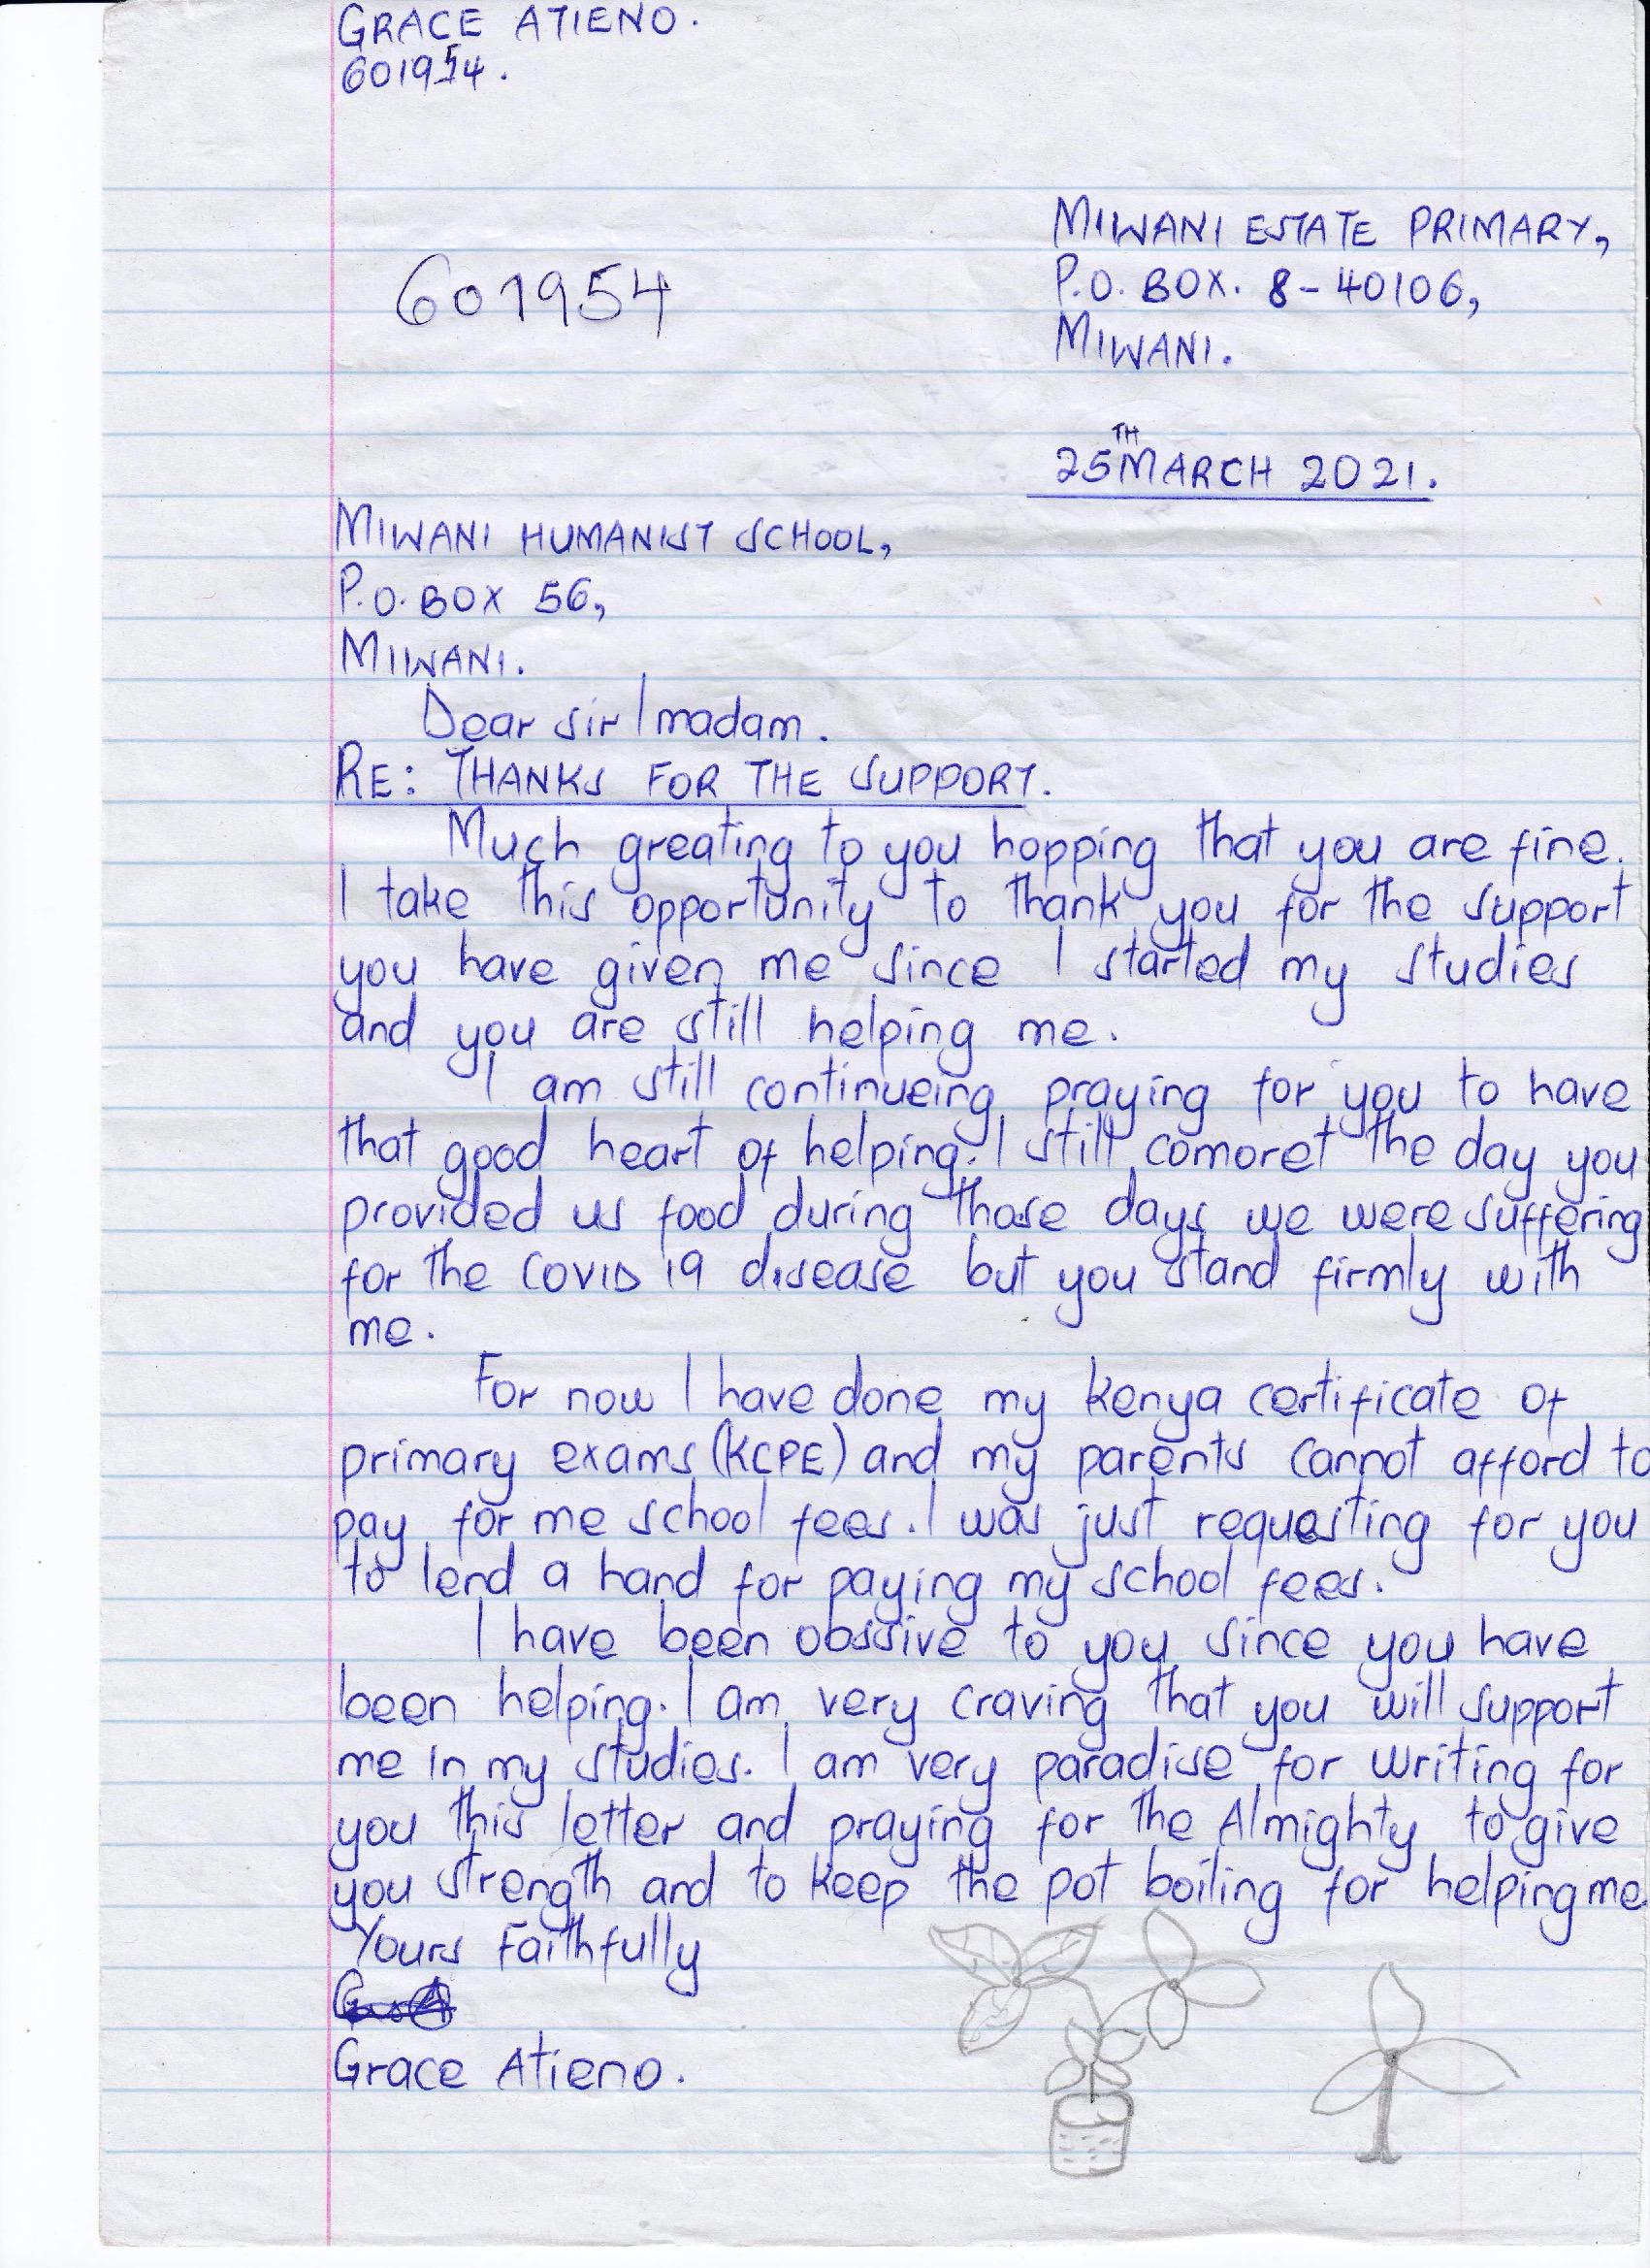 GRACE ATIENO.
601954.
MIWANI ESTATE PRIMARY,
601954
P.O. BOX. 8-40106,
MIWANI.
25TH MARCH 2021.
MIWANI HUMANIST SCHOOL,
P.O. BOX 56,
MIWANI.
Dear sir/madam.
RE: THANKS FOR THE SUPPORT.
Much greating to you hopping that you are fine.
I take this opportunity to thank you for the support
you have given me since I started my studies
and you are still helping me.
I am still continueing praying for you to have
that good heart of helping. I still comoret the day you
provided us food during those days we were suffering
for the COVID 19 disease but you stand firmly with
me.
For now I have done my Kenya certificate of
primary exams (KCPE) and my parents cannot afford to
pay for me school fees. I was just requesting for you
to lend a hand for paying my school fees.
I have been obssive to you since you have
been helping. I am very craving that you will support
me in my studies. I am very paradise for writing for
you this letter and praying for the Almighty to give
you strength and to keep the pot boiling for helping me
Yours Faithfully
Grace Atieno.